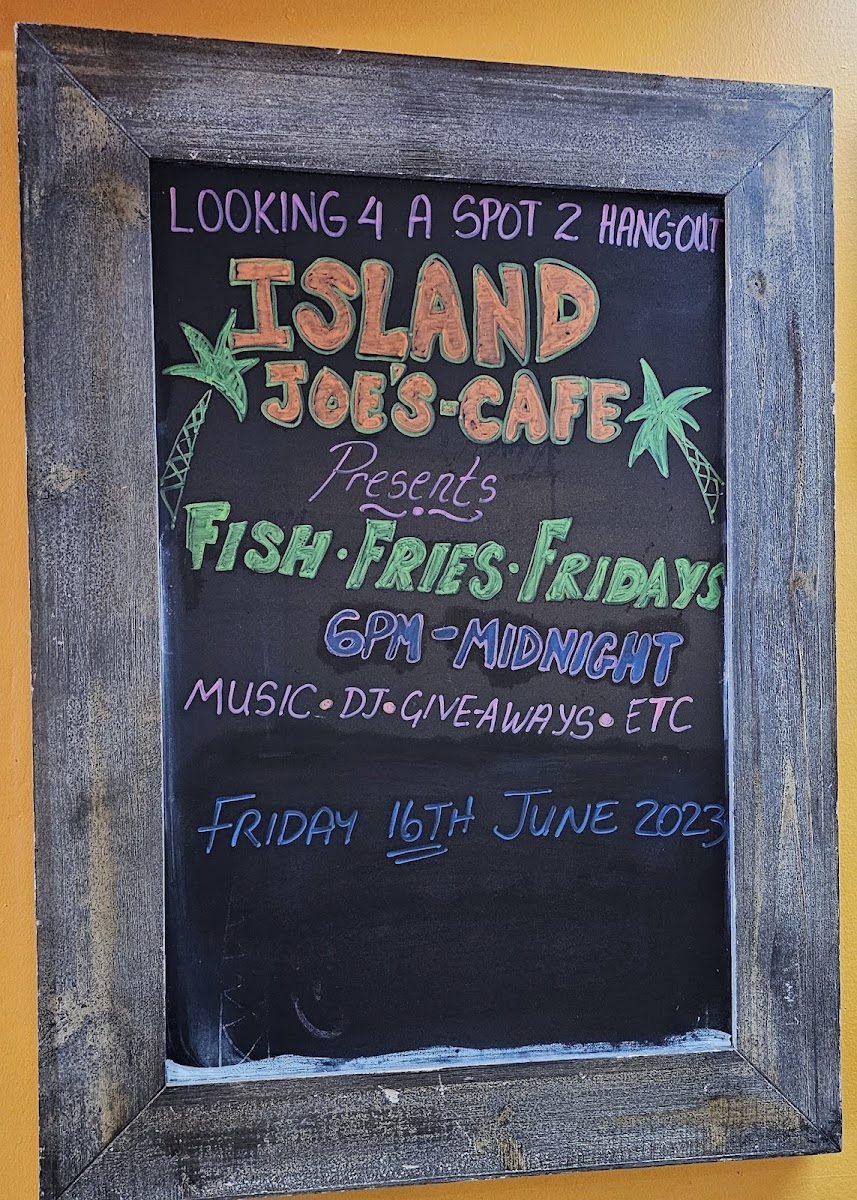 LOOKING 4 A SPOT 2 HANG-OUT
ISLAND
JOE'S-CAFE
Presents
FISH·FRIES·FRIDAYS
6PM-MIDNIGHT
MUSIC·DJ·GIVE-AWAYS·ETC
FRIDAY 16TH JUNE 2023